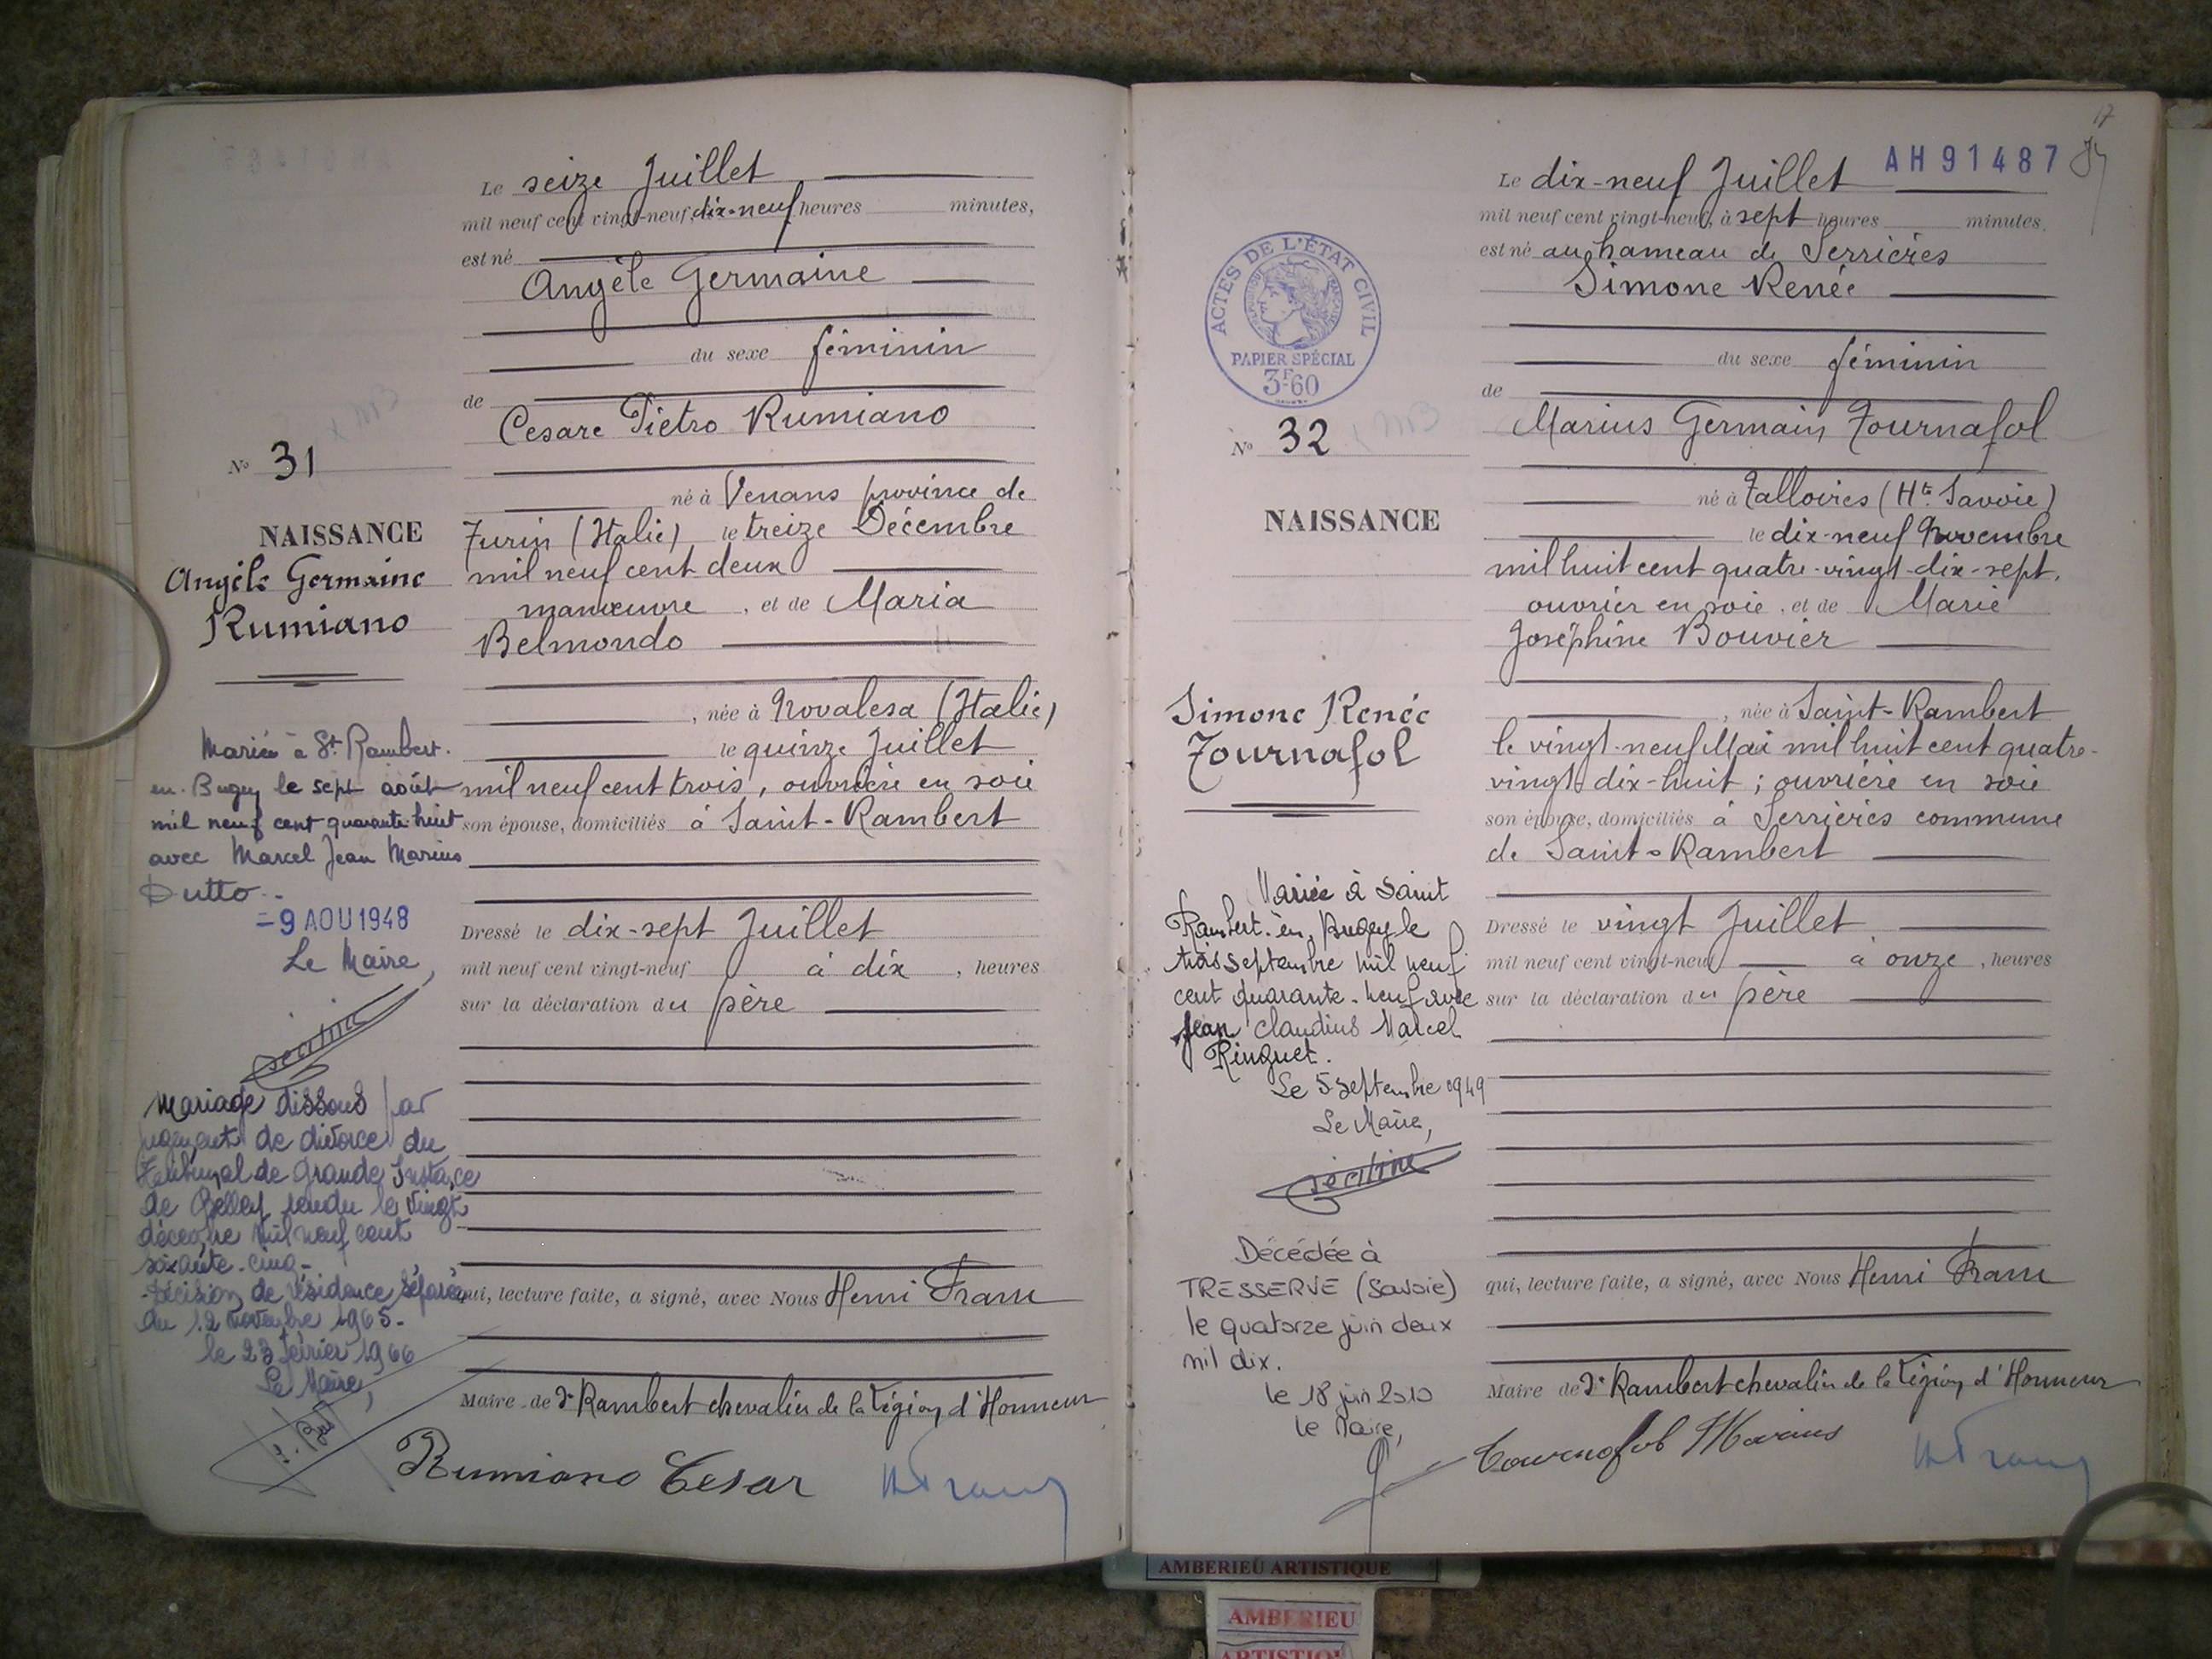 Le seize Juillet
mil neuf cent vingt-neuf, dix-neuf heures minutes,
est né
Angèle Germaine
du sexe féminin
de
Cesare Pietro Rumiano
né à Venans province de
Turin (Italie) le treize Décembre
mil neuf cent deux
manœuvre, et de Maria
Belmondo
, née à Novalesa (Italie)
le quinze Juillet
mil neuf cent trois, ouvrière en soie
son épouse, domiciliés à Saint-Rambert
Dressé le dix-sept Juillet
mil neuf cent vingt-neuf à dix, heures
sur la déclaration du père
qui, lecture faite, a signé, avec Nous Henri Franc
Maire de St Rambert chevalier de la Légion d'Honneur
Rumiano Cesar
HFranc
No 31
NAISSANCE
Angèle Germaine
Rumiano
Mariée à St Rambert.
en-Bugey le sept août
mil neuf cent quarante-huit
avec Marcel Jean Marius
Dutto.-
-9 AOU 1948
Le Maire,
Mariage dissous par
jugement de divorce du
Tribunal de Grande Instance
de Belley rendu le vingt
décembre mil neuf cent
soixante-cinq-
-Décision de résidence séparée
du 12 novembre 1965-
le 23 février 1966
Le Maire,
17
AH91487
Le dix-neuf Juillet
mil neuf cent vingt-neuf, à sept heures minutes.
est né au hameau de Serrières
Simone Renée
du sexe féminin
de
Marius Germain Tournafol
né à Talloires (Hte Savoie)
le dix-neuf Novembre
mil huit cent quatre-vingt-dix-sept,
ouvrier en soie, et de Marie
Joséphine Bouvier
, née à Saint-Rambert
le vingt-neuf Mai mil huit cent quatre-
vingt dix-huit; ouvrière en soie
son épouse, domiciliés à Serrières commune
de Saint-Rambert
Dressé le vingt Juillet
mil neuf cent vingt-neuf à onze, heures
sur la déclaration du père
qui, lecture faite, a signé, avec Nous Henri Franc
Maire de St Rambert chevalier de la Légion d'Honneur
Tournafol Marius
HFranc
ACTES DE L'ÉTAT CIVIL
PAPIER SPÉCIAL
3F60
No 32
NAISSANCE
Simone Renée
Tournafol
Mariée à Saint
Rambert-en-Bugey le
trois septembre mil neuf
cent quarante-neuf avec
Jean Claudius Marcel
Ringuet.
Le 5 septembre 1949
Le Maire,
Décédée à
TRESSERVE (Savoie)
le quatorze juin deux
mil dix.
le 18 juin 2010
le Maire,
AMBERIEU ARTISTIQUE
AMBERIEU
ARTISTIQUE